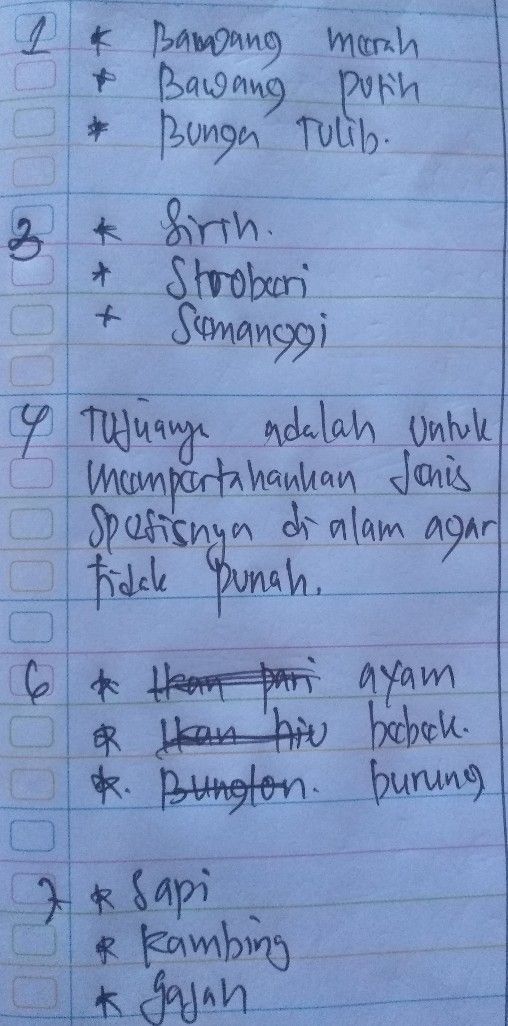 1 * Bawang merah
* Bawang putih
* Bunga Tulib.
3 * Sirih.
* Stroberi
* Semanggi
4 Tujuanya adalah untuk
mempertahankan Jenis
Spesisnya di alam agar
tidak punah.
6 * Ikan pari ayam
* Ikan hiu bebek.
* Bunglon. burung
7 * Sapi
* Kambing
* gajah